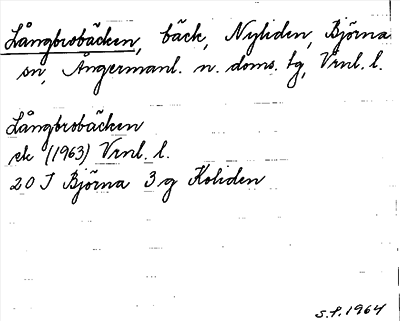 Långbrobäcken, bäck, Nyliden, Björna
sn, Ångermanl. n. doms. tg, Vrnl. l.
Långbrobäcken
ek (1963) Vrnl. l.
20 J Björna 3 g Koliden
S.F. 1964